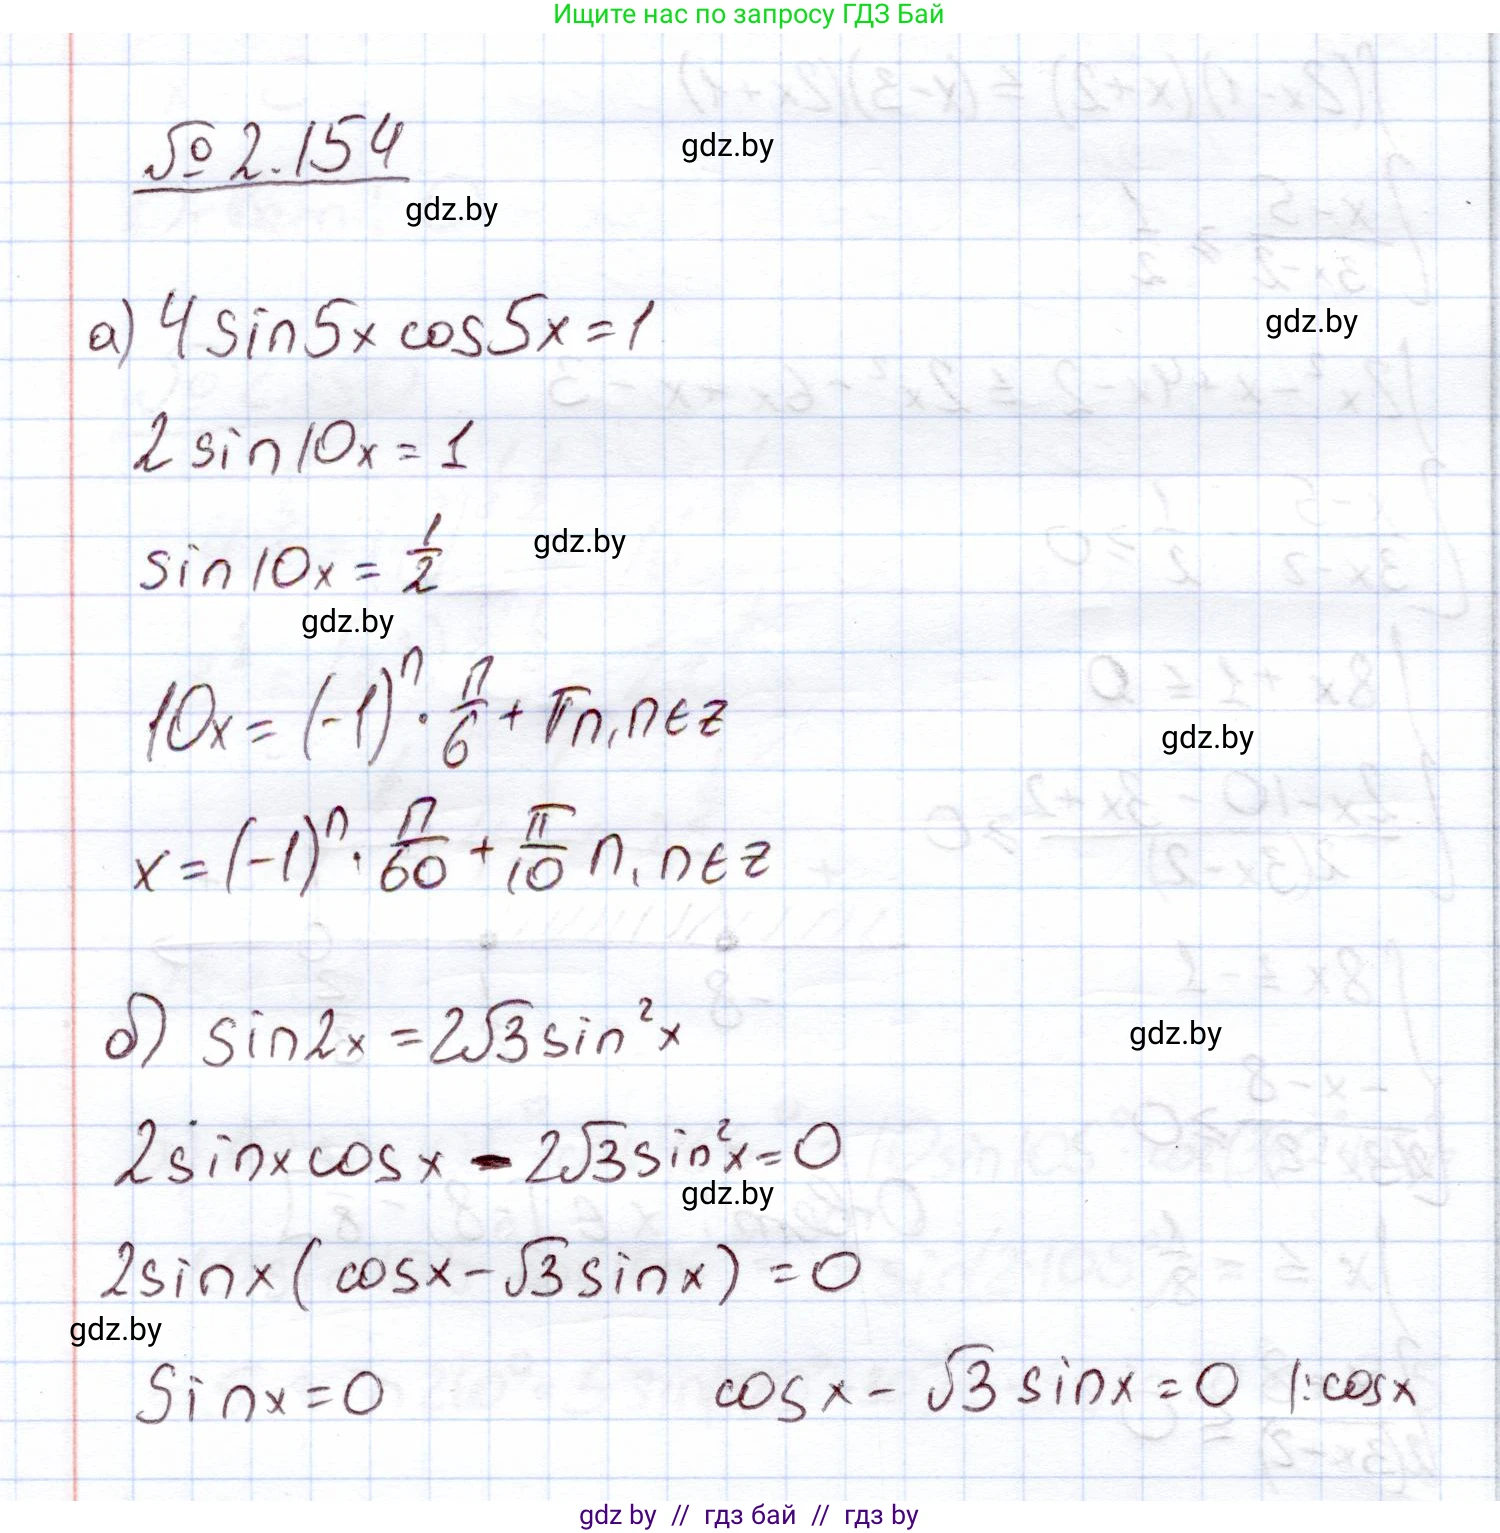 Ищите нас по запросу ГДЗ Бай
№ 2.154
gdz.by
gdz.by
а) 4 sin5x cos5x = 1
gdz.by
2 sin10x = 1
sin10x = 1/2
gdz.by
gdz.by
10x = (-1)^n · π/6 + πn, n∈z
gdz.by
x = (-1)^n · π/60 + π/10 n, n∈z
б) sin2x = 2√3 sin²x
gdz.by
2sinx cosx - 2√3 sin²x = 0
gdz.by
2sinx ( cosx - √3 sinx ) = 0
gdz.by
sinx = 0 cosx - √3 sinx = 0 |: cosx
gdz.by // гдз бай // гдз by